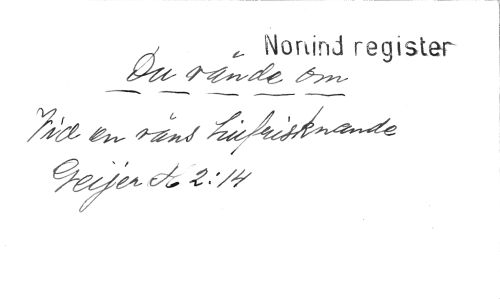 Norlind register
Du vände om
Vid en väns tillfrisknande
Geijer 2:14